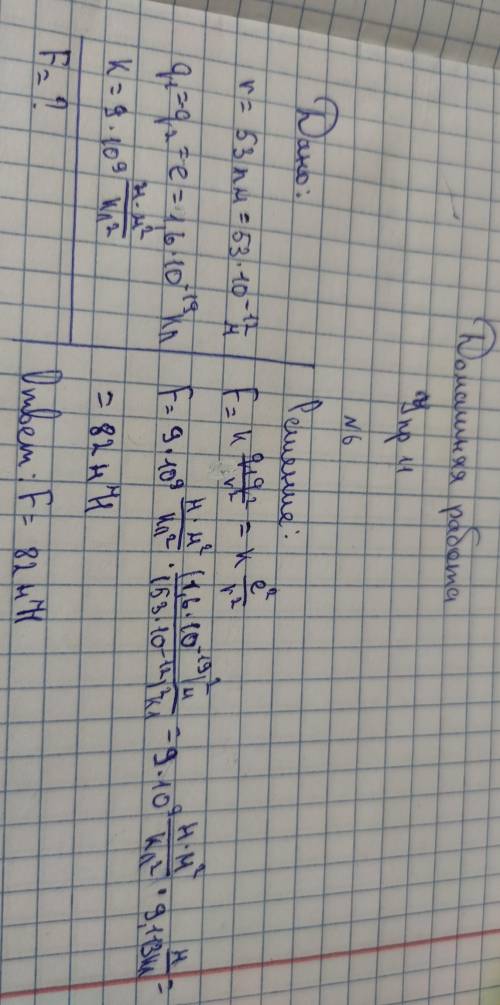 Домашняя работа
Упр 11
№6
Дано:
r = 53 пм = 53 · 10⁻¹² м
q₁ = q₂ = e = 1,6 · 10⁻¹⁹ Кл
k = 9 · 10⁹ Н·м²/Кл²
F = ?
Решение:
F = k q₁q₂/r² = k e²/r²
F = 9 · 10⁹ Н·м²/Кл² · (1,6·10⁻¹⁹)² м/(53·10⁻¹²)² Кл = 9 · 10⁹ Н·м²/Кл² ·
= 82 нН
Ответ: F = 82 нН